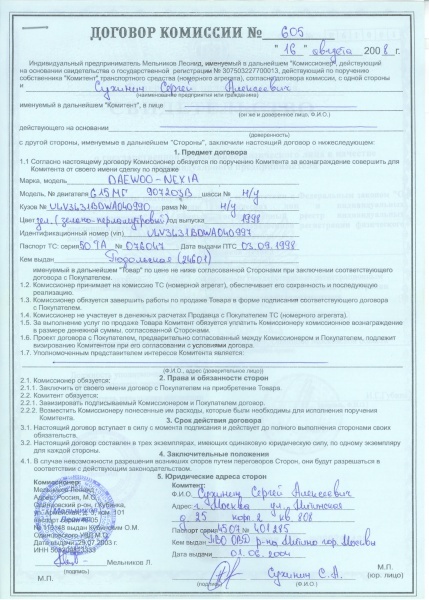 ДОГОВОР КОМИССИИ № 605
"16" августа 2008 г.
Индивидуальный предприниматель Мельников Леонид, именуемый в дальнейшем "Комиссионер", действующий
на основании свидетельства о государственной регистрации № 307503227700013, действующий по поручению
собственника "Комитент" транспортного средства (номерного агрегата), согласно договора комиссии, с одной стороны
и Сухинин Сергей Алексеевич
(наименование предприятия или гражданина)
именуемый в дальнейшем "Комитент", в лице
(он же и доверенное лицо, Ф.И.О.)
действующего на основании
(доверенность)
с другой стороны, именуемые в дальнейшем "Стороны", заключили настоящий договор о нижеследующем:
1. Предмет договора
1.1 Согласно настоящему договору Комиссионер обязуется по поручению Комитента за вознаграждение совершить для
Комитента от своего имени сделку по продаже
Марка, модель DAEWOO-NEXIA
Модель, № двигателя G15MF 907203B шасси № н/у
Кузов № рама № н/у
Цвет зел. (зелено-перламутровый) Год выпуска 1998
Идентификационный номер (vin)
Паспорт ТС: серия 50 ТА № 076047 Дата выдачи ПТС 03.09.1998
Кем выдан Подольская (24601)
именуемый в дальнейшем "Товар" по цене не ниже согласованной Сторонами при заключении соответствующего
договора с Покупателем.
1.2. Комиссионер принимает на комиссию ТС (номерной агрегат), обеспечивает его сохранность и последующую
реализацию.
1.3. Комиссионер обязуется завершить работы по продаже Товара в форме подписания соответствующего договора
с Покупателем.
1.4. Комиссионер не участвует в денежных расчетах Продавца с Покупателем ТС (номерного агрегата).
1.5. За выполнение услуг по продаже Товара Комитент обязуется уплатить Комиссионеру комиссионное вознаграждение
в размере денежной суммы, согласованной Сторонами.
1.6. Проект договора с Покупателем, предварительно согласованный между Комиссионером и Покупателем, подлежит
визированию Комитентом при его согласовании с условиями договора.
1.7. Уполномоченным представителем интересов Комитента является:
(Ф.И.О., адрес (доверительное лицо))
2. Права и обязанности сторон
2.1. Комиссионер обязуется:
2.1.1. Заключить от своего имени договор с Покупателем на приобретения Товара.
2.2. Комитент обязуется:
2.2.1. Завизировать подписываемый Комиссионером и Покупателем договор.
2.2.2. Возместить Комиссионеру понесенные им расходы, которые были необходимы для исполнения поручения
Комитента.
3. Срок действия договора
3.1. Настоящий договор вступает в силу с момента подписания и действует до полного выполнения сторонами своих
обязательств.
3.2. Настоящий договор составлен в трех экземплярах, имеющих одинаковую юридическую силу, по одному экземпляру
для каждой стороны.
4. Заключительные положения
4.1. В случае невозможности разрешения возникших споров путем переговоров Сторон, они будут разрешаться в
соответствии с действующим законодательством.
5. Юридические адреса сторон
Комиссионер:
Мельников Леонид
Адрес: Россия, М.О.,
Одинцовский р-он, г.Кубинка,
Дата выдачи: 29.07.2003 г.
Мельников Л.
(подпись)
М.П.
Комитент:
Ф.И.О. Сухинин Сергей Алексеевич
Адрес: г. Москва ул. Митинская
д. 25 корп 2 кв. 808
Паспорт 4507 № 401285
Кем выдан ПВО ОВД р-на Митино гор. Москвы
Дата выдачи 01.06.2004
Сухинин С.А.
(подпись) (Ф.И.О.)
М.П. (юр. лицо)